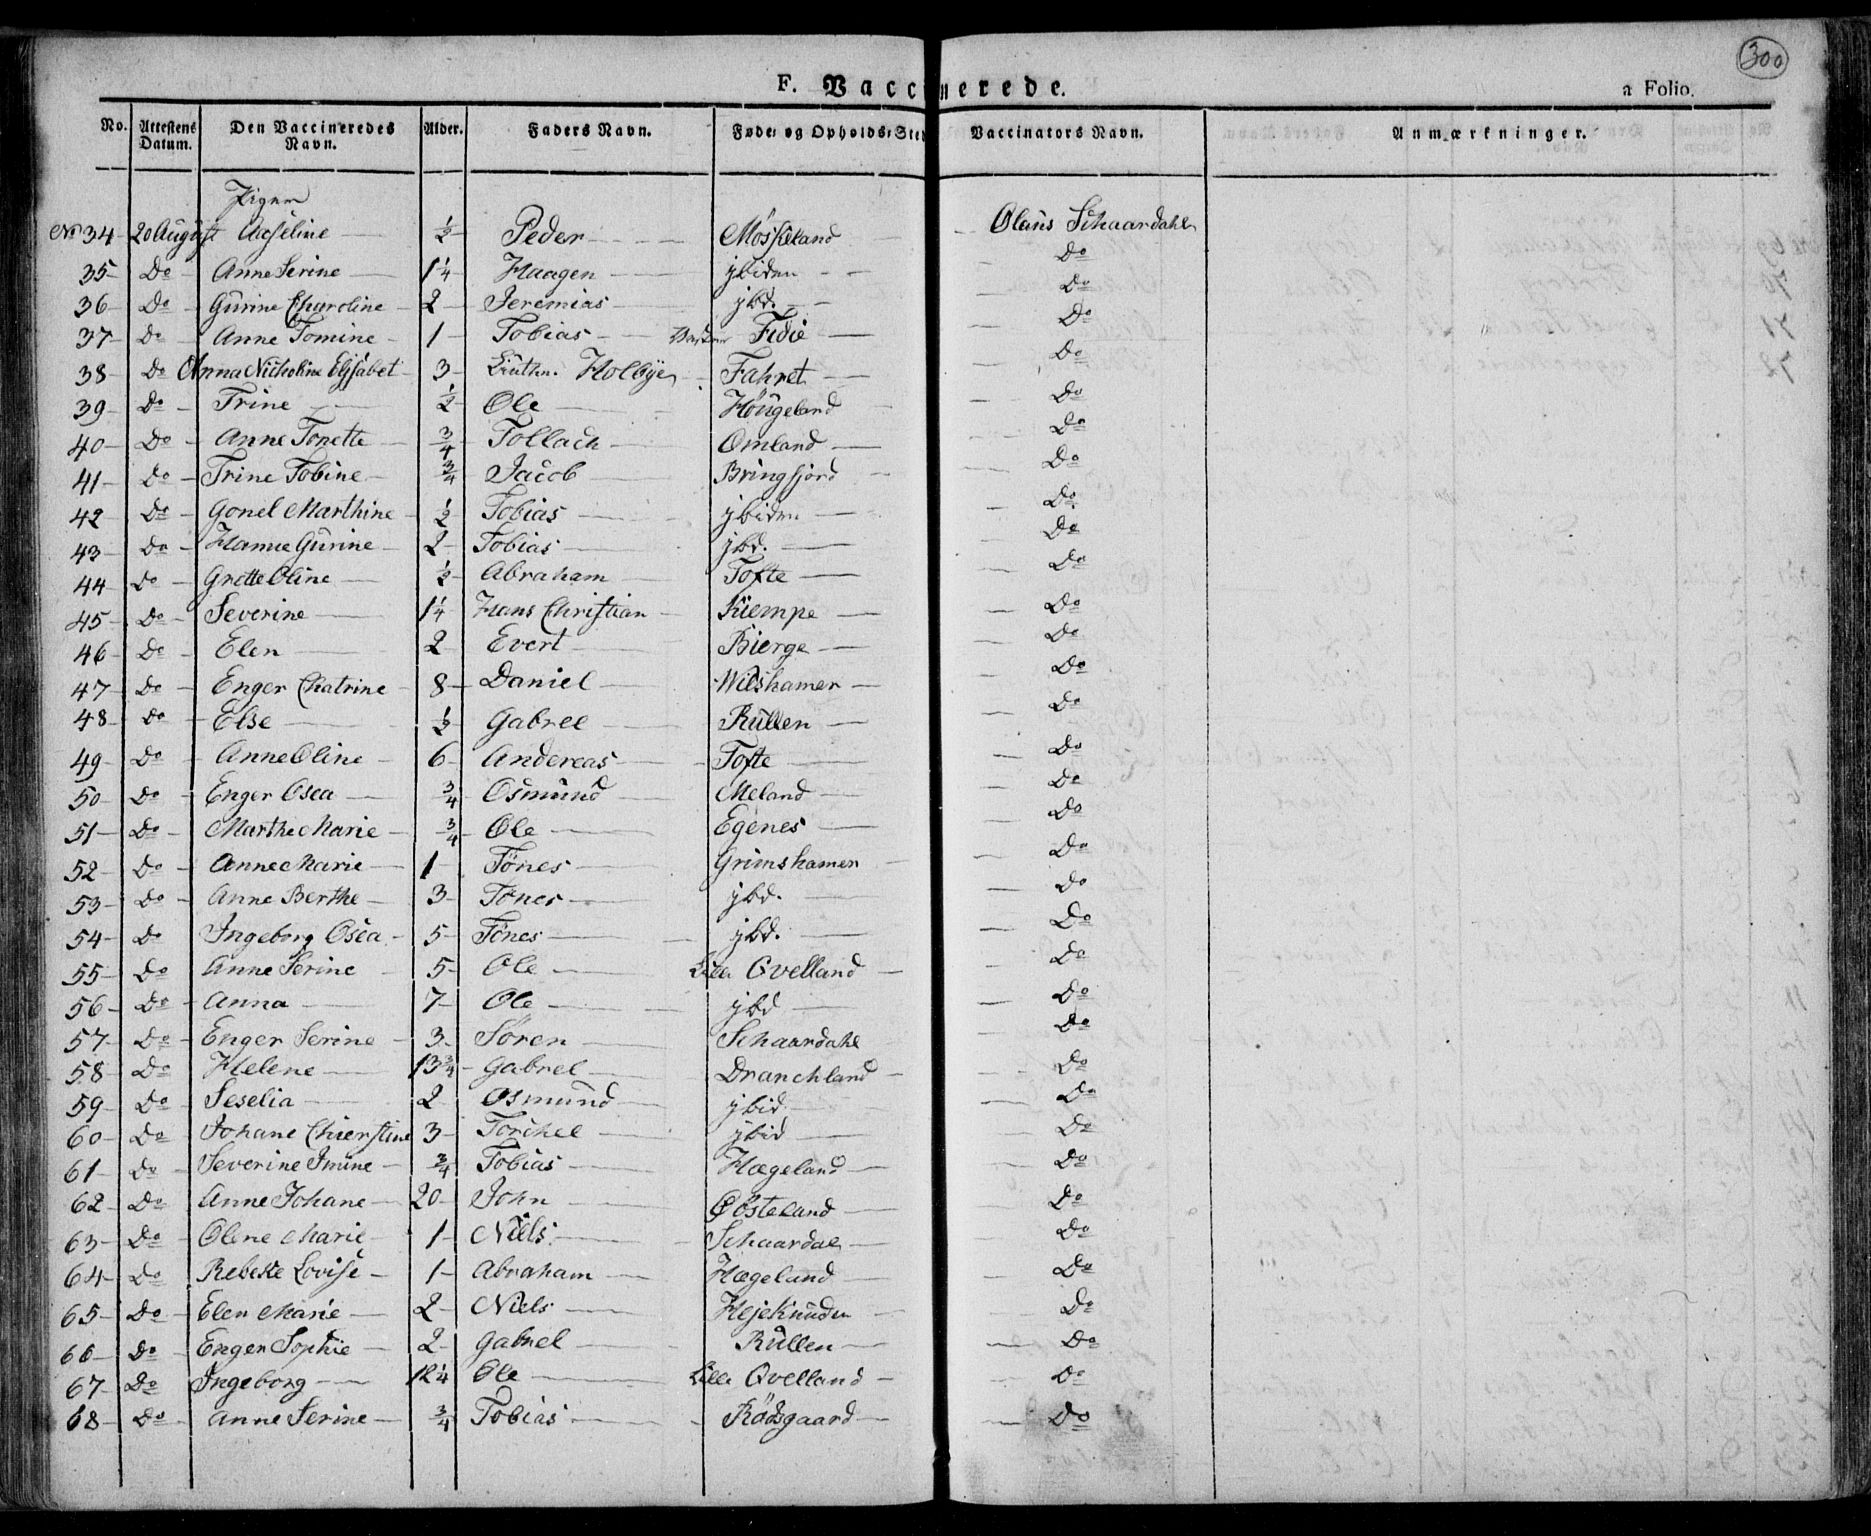 300
F. Vaccinerede. a Folio.
No. Attestens Datum. Den Vaccineredes Navn. Alder. Faders Navn. Føde- og Opholds-Sted Vaccinators Navn. Anmærkninger.
Piger
No 34 20 August Aaseline ½ Peder Möskeland Olaus Schaardahl
35 Do Anne Serine 1¼ Haagen jbiden Do
36 Do Gurine Charoline 2 Jeremias jbd. Do
37 Do Anne Tomine 1 Tobias Fidie Do
38 Do Anna Nicholine Elisabet 3 Holbye Fahret Do
39 Do Trine ½ Ole Höugeland Do
40 Do Anne Tonette ¾ Tollach Omland Do
41 Do Trine Tobine ¾ Jacob Bringsjord Do
42 Do Gonel Marthine ½ Tobias jbiden Do
43 Do Hanne Gurine 2 Tobias jbd. Do
44 Do Grette Oline ½ Abraham Tofte Do
45 Do Severine 1¼ Hans Christian Kiempe Do
46 Do Elen 2 Evert Bierge Do
47 Do Enger Chatrine 8 Daniel Wilshamer Do
48 Do Else ½ Gabrel Rullen Do
49 Do Anne Oline 6 Andereas Tofte Do
50 Do Enger Osea ¾ Osmund Meland Do
51 Do Marthe Marie ¾ Ole Egenes Do
52 Do Anne Marie 1 Tönes Grimshamer Do
53 Do Anne Berthe 3 Tönes jbd. Do
54 Do Ingeborg Osea 5 Tönes jbd. Do
55 Do Anne Serine 5 Ole Lille Qvelland Do
56 Do Anna 7 Ole jbd Do
57 Do Enger Serine 3 Sören Schaardahl Do
58 Do Helene 13¾ Gabrel Dranchland Do
59 Do Seselia 2 Osmund jbid. Do
60 Do Johane Chierstine 3 Torchel jbid Do
61 Do Severine Imine ¾ Tobias Hægeland Do
62 Do Anne Johane 20 John Östeland Do
63 Do Olene Marie 1 Niels Schaardal Do
64 Do Rebeke Lovise 1 Abraham Hægeland Do
65 Do Elen Marie 2 Niels Do
66 Do Enger Sophie 2 Gabriel Rullen Do
67 Do Ingeborg 12¼ Ole Lille Qvelland Do
68 Do Anne Serine ¾ Tobias Rödsgaard Do